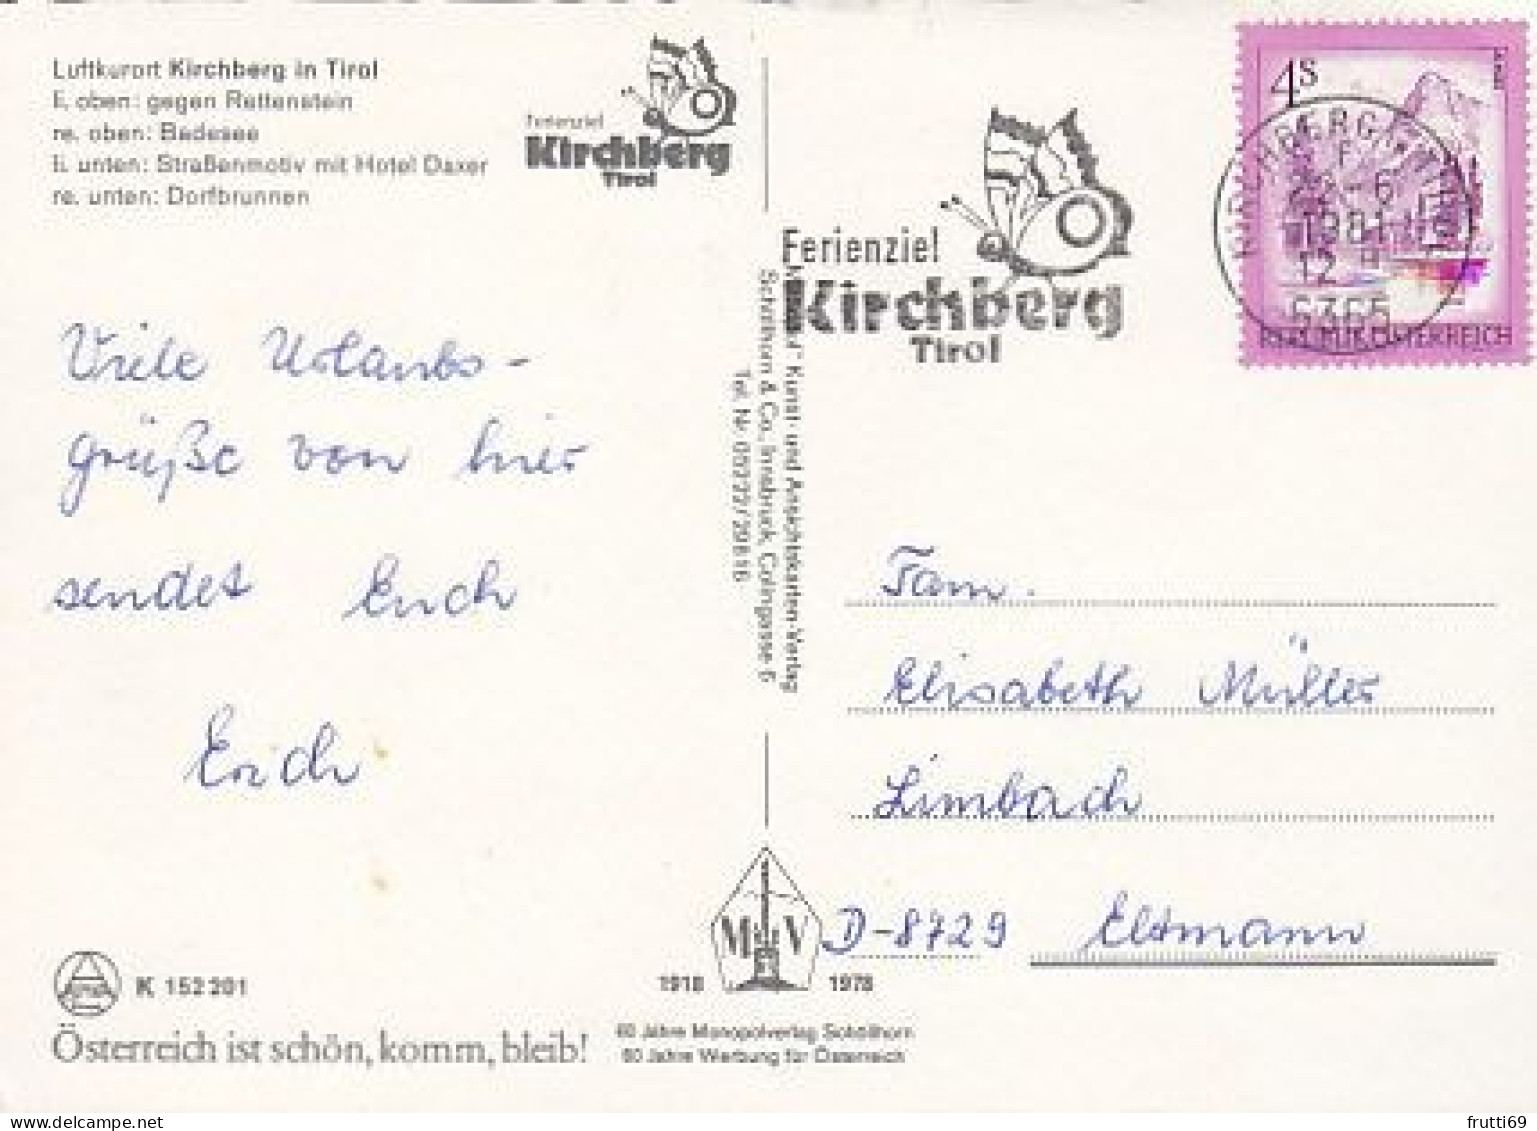 Luftkurort Kirchberg in Tirol
li. oben: gegen Rettenstein
re. oben: Badesee
li. unten: Straßenmotiv mit Hotel Daxer
re. unten: Dorfbrunnen
Ferienziel
Kirchberg
Tirol
Ferienziel
Kirchberg
Tirol
4S
1981
12
6365
REPUBLIK ÖSTERREICH
Viele Urlaubs-
grüße von hier
sendet Euch
Erich
Kunst- und Ansichtskarten-Verlag
Schöllhorn & Co., Innsbruck, Colingasse 6
Tel. Nr. 05222/29816
Fam.
Elisabeth Müller
Limbach
D-8729 Eltmann
M V
1918 1978
K 152 201
Österreich ist schön, komm, bleib!
60 Jahre Monopolverlag Schöllhorn
60 Jahre Werbung für Österreich
frutti69